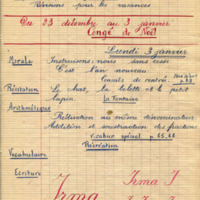 Révisions pour les vacances
Du 23 décembre au 3 janvier
Congé de Noël
Lundi 3 janvier
Morale
Instruisons-nous sans cesse
C'est l'an nouveau
Récitation
Le chat, la belette et le petit
lapin La Fontaine
Arithmétique
Réduction au même dénominateur
Addition et soustraction des fractions
Récréation
Vocabulaire
Ecriture
Irma J
Irma